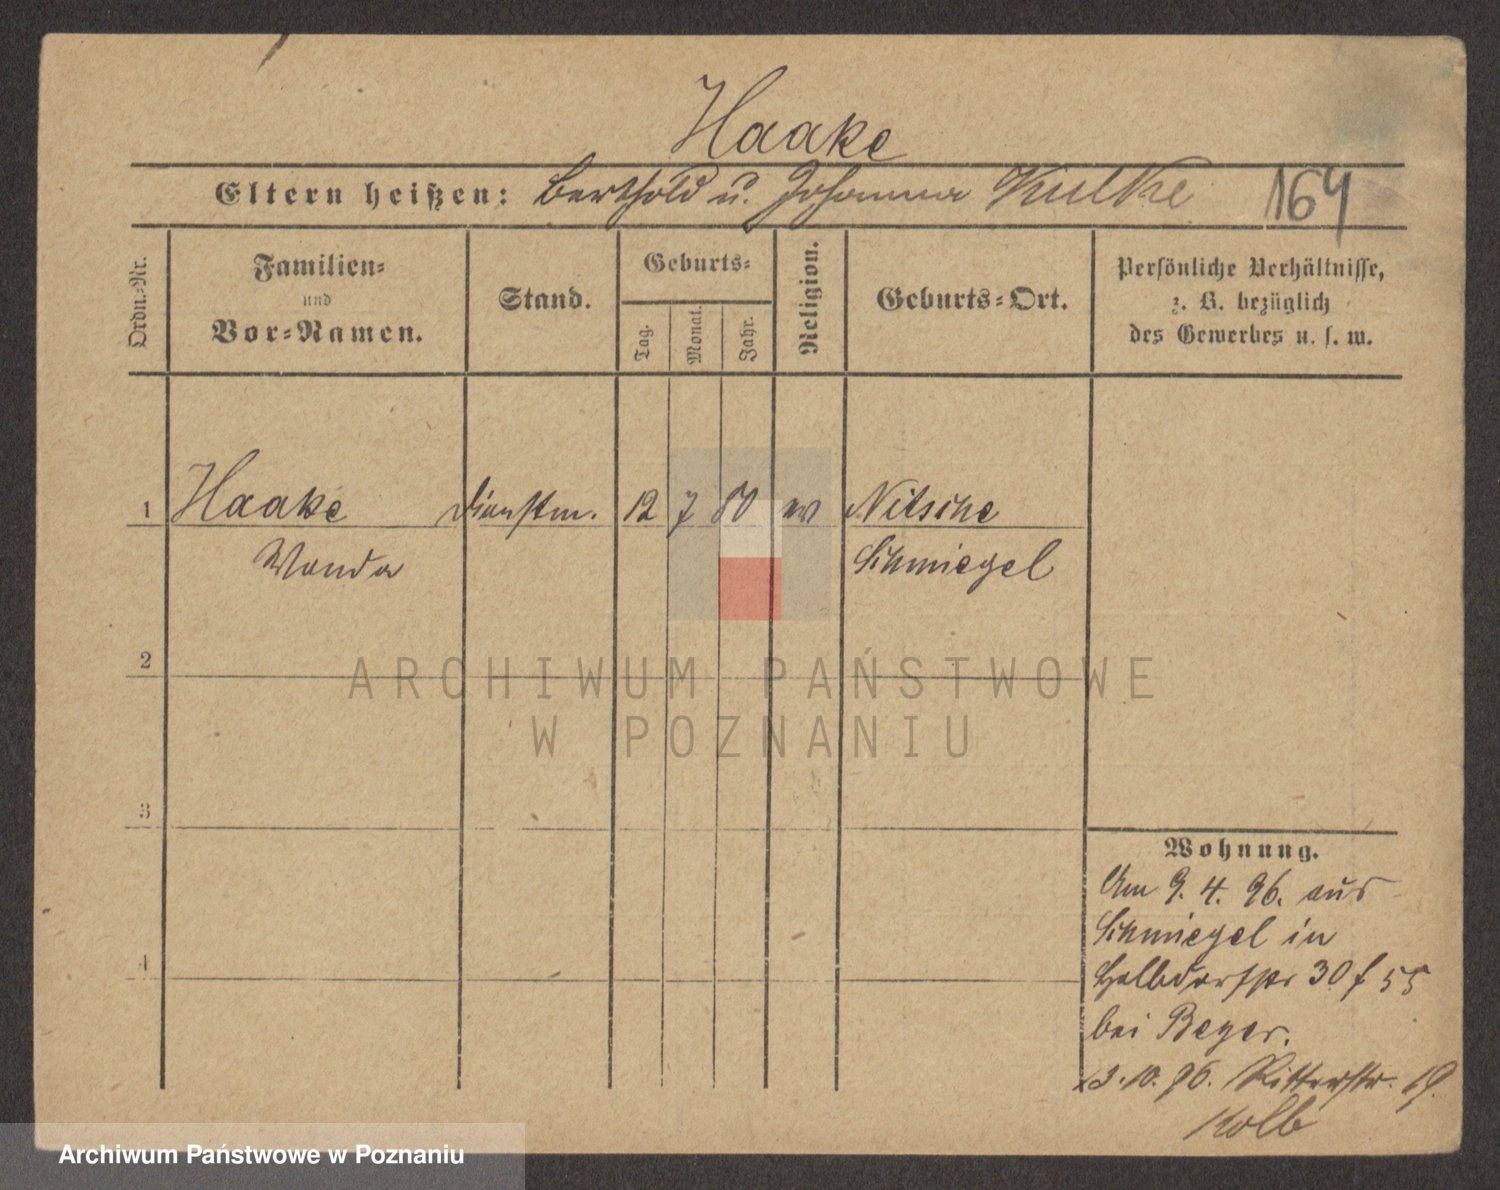 Haake
Eltern heißen: Berthold u. Johanna Kulke 164
Ordn.-Nr.
Familien-
und
Vor-Namen.
Stand.
Geburts-
Tag.
Monat.
Jahr.
Religion.
Geburts-Ort.
Persönliche Verhältnisse,
z. B. bezüglich
des Gewerbes u. s. w.
1 Haake Dienstm. 12 7 80 ev Nitsche
Wanda Schmiegel
2
3
4
Wohnung.
Am 9. 4. 96. aus
Schmiegel in
Halbdorfstr 30 f 55
bei Beyer.
3.10.96. Ritterstr. 19.
Kolb
ARCHIWUM PAŃSTWOWE
W POZNANIU
Archiwum Państwowe w Poznaniu